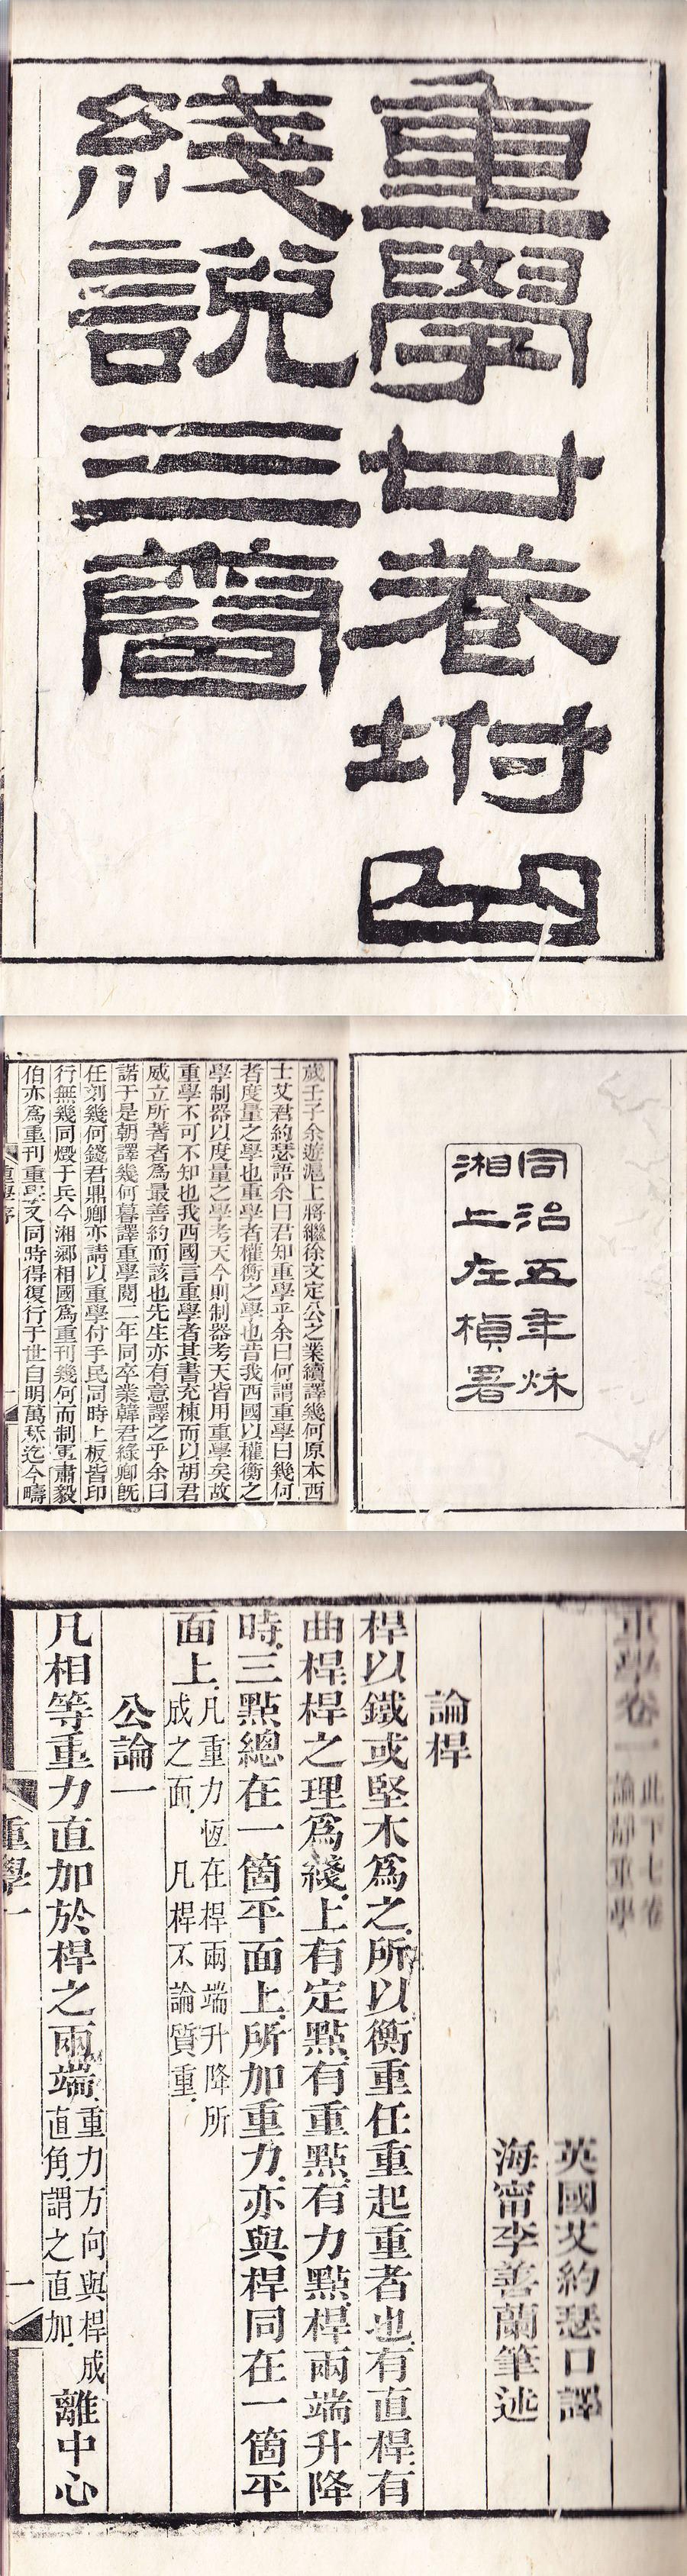 重學廿卷坿曲
綫說三卷
同治五年秌
湘上左楨署
歲壬子余遊滬上將繼徐文定公之業續譯幾何原本西
士艾君約瑟語余曰君知重學乎余曰何謂重學曰幾何
者度量之學也重學者權衡之學也昔我西國以權衡之
學制器以度量之學考天今則制器考天皆用重學矣故
重學不可不知也我西國言重學者其書充棟而以胡君
威立所著者為最善約而該也先生亦有意譯之乎余曰
諾于是朝譯幾何暮譯重學閱二年同卒業韓君綠卿旣
任刻幾何錢君鼎卿亦請以重學付手民同時上板皆印
行無幾同燬于兵今湘鄉相國為重刊幾何而制軍肅毅
伯亦為重刊重學又同時得復行于世自明萬秝迄今疇
重學序
重學卷一 此下七卷論靜重學
英國艾約瑟口譯
海甯李善蘭筆述
論桿
桿以鐵或堅木為之所以衡重任重起重者也有直桿有
曲桿桿之理為綫上有定點有重點有力點桿兩端升降
時三點總在一箇平面上所加重力亦與桿同在一箇平
面上凡重力恆在桿兩端升降所成之面凡桿不論質重
公論一
凡相等重力直加於桿之兩端重力方向與桿成直角謂之直加離中心
重學一
一